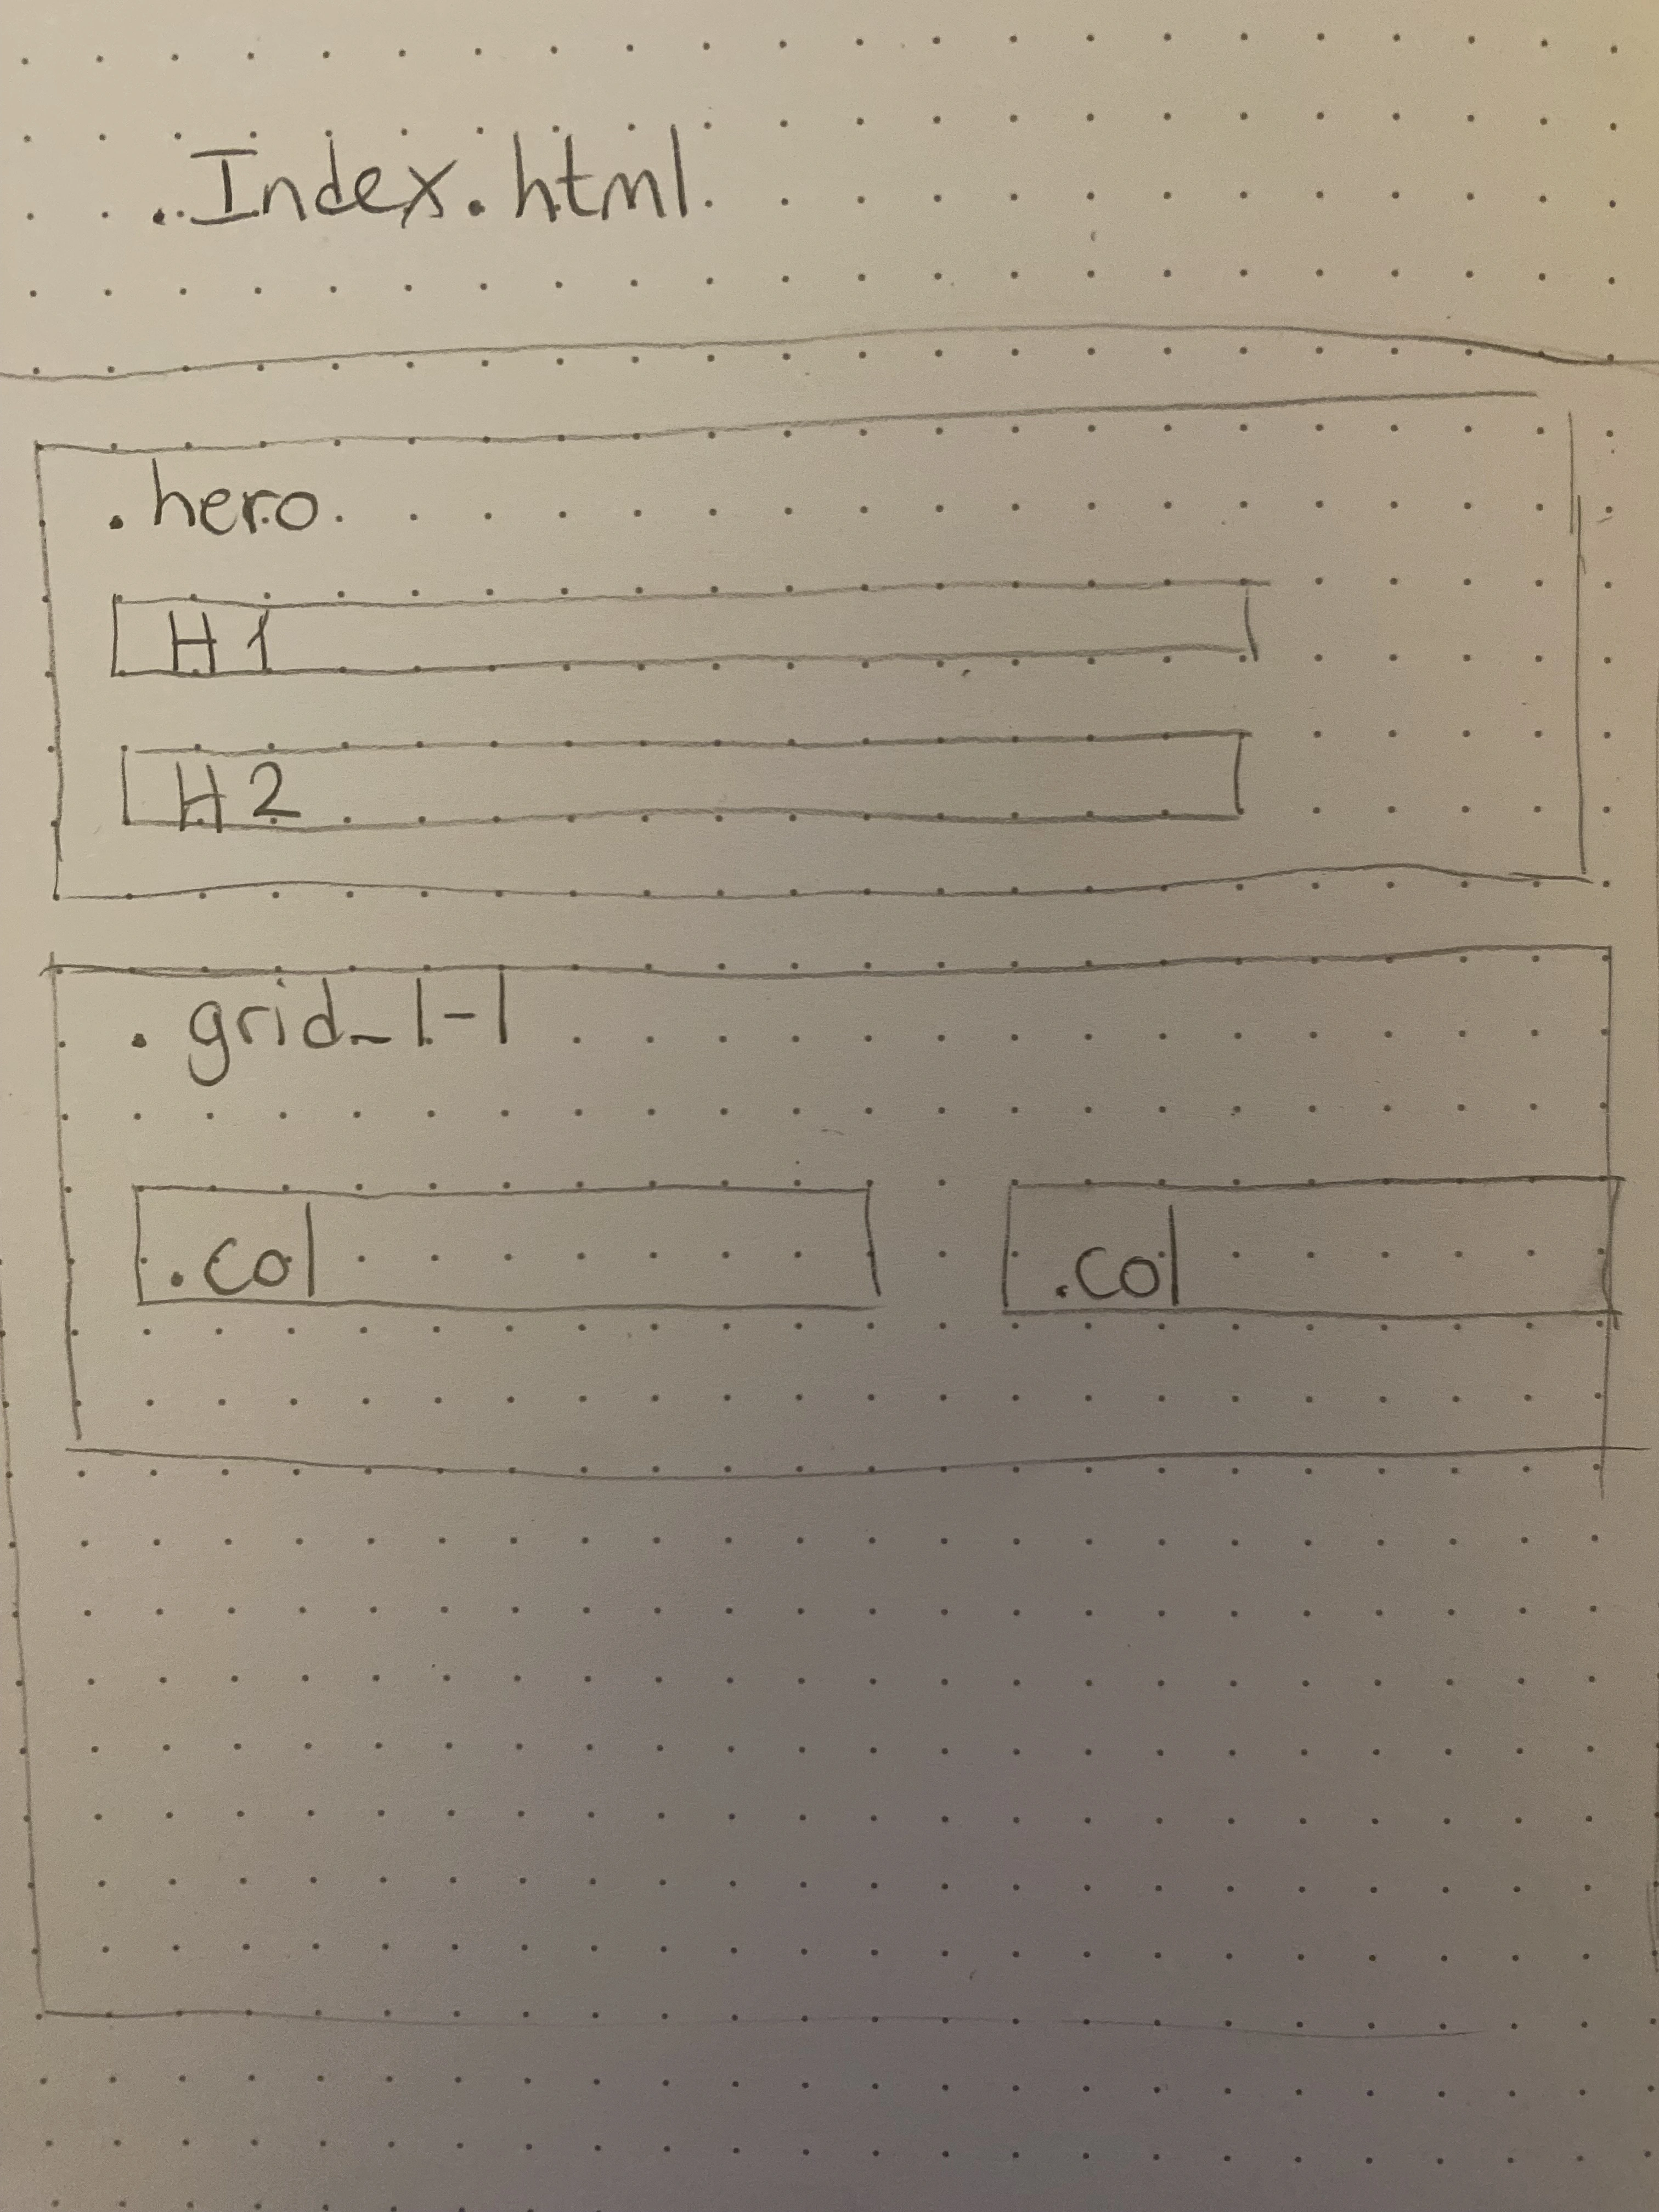 Index.html
.hero
H1
H2
.grid_1-1
.col .col